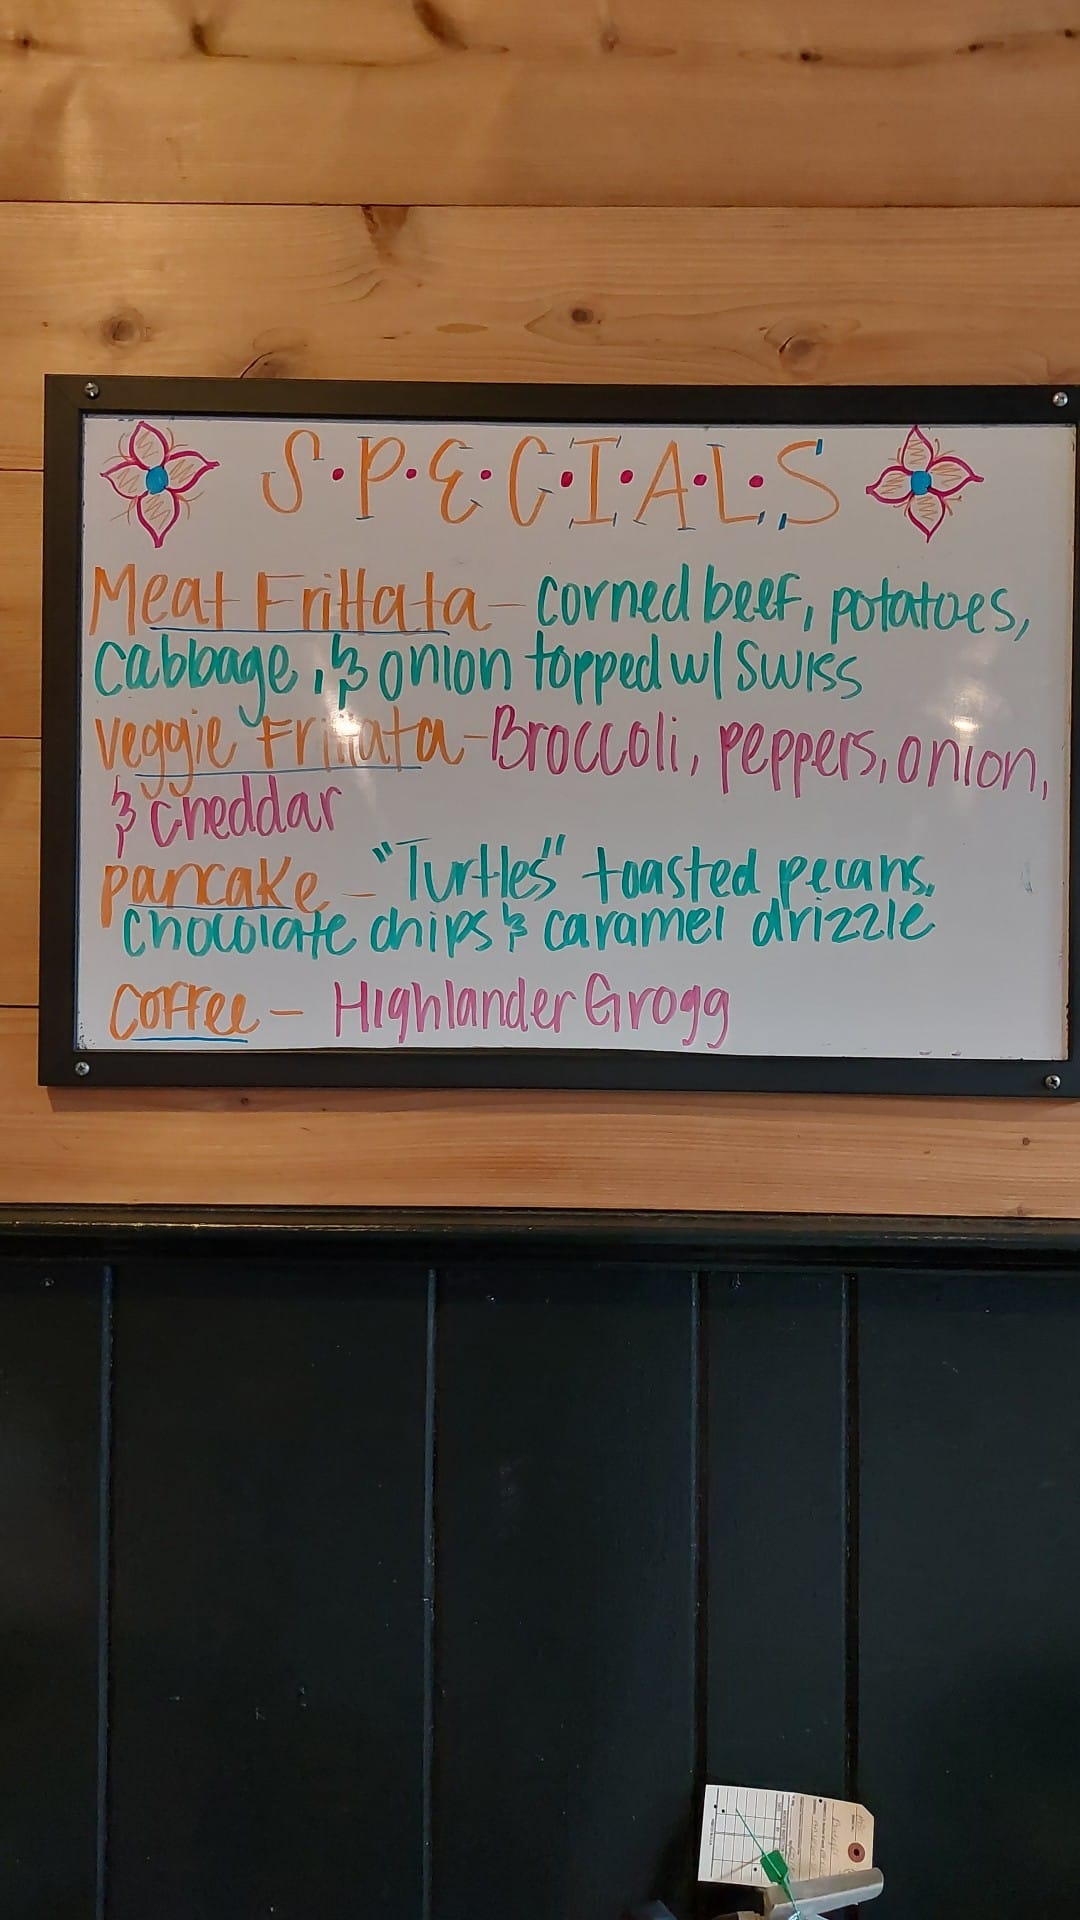 S.P.E.C.I.A.L.S
Meat Frittata - corned beef, potatoes,
cabbage, & onion topped w/ swiss
veggie Frittata - Broccoli, peppers, onion,
& cheddar
pancake - "Turtles" toasted pecans,
chocolate chips & caramel drizzle
coffee - Highlander Grogg